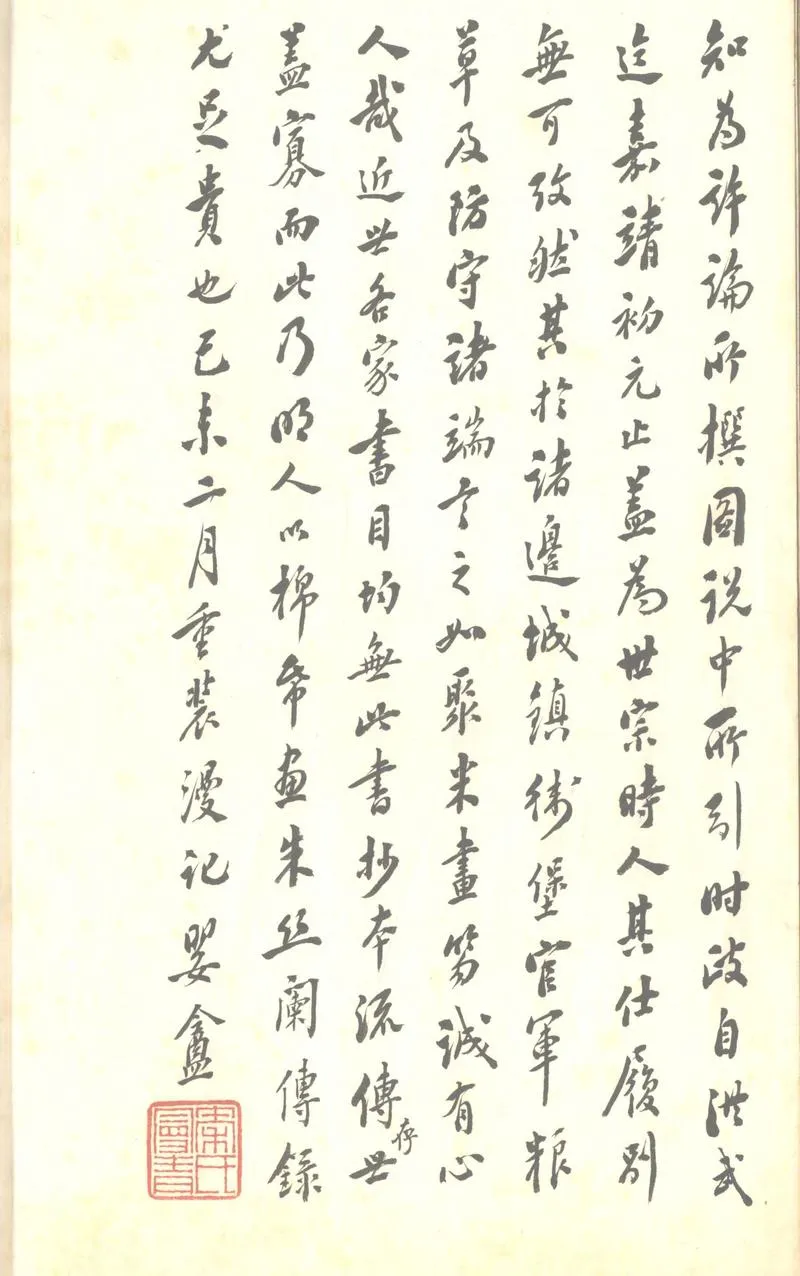 知為許論所撰圖說中所引时政自洪武
迄嘉靖初元止蓋為世宗時人其仕履別
無可攷然其於諸邊城鎮衛堡官軍粮
草及防守諸端言之如聚米畫笏誠有心
人哉近世各家書目均無此書抄本流傳存世
蓋寡而此乃明人以棉帋画朱丝闌傳錄
尤足貴也己未二月重裝漫記嬰盦
秦氏曼青